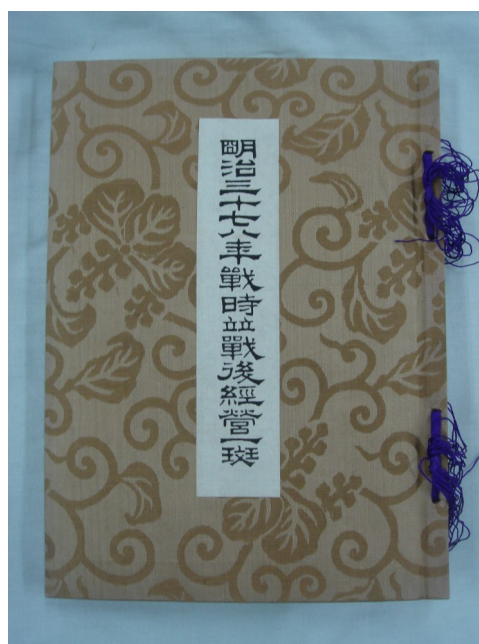 明治三十七八年戰時並戰後經營一斑